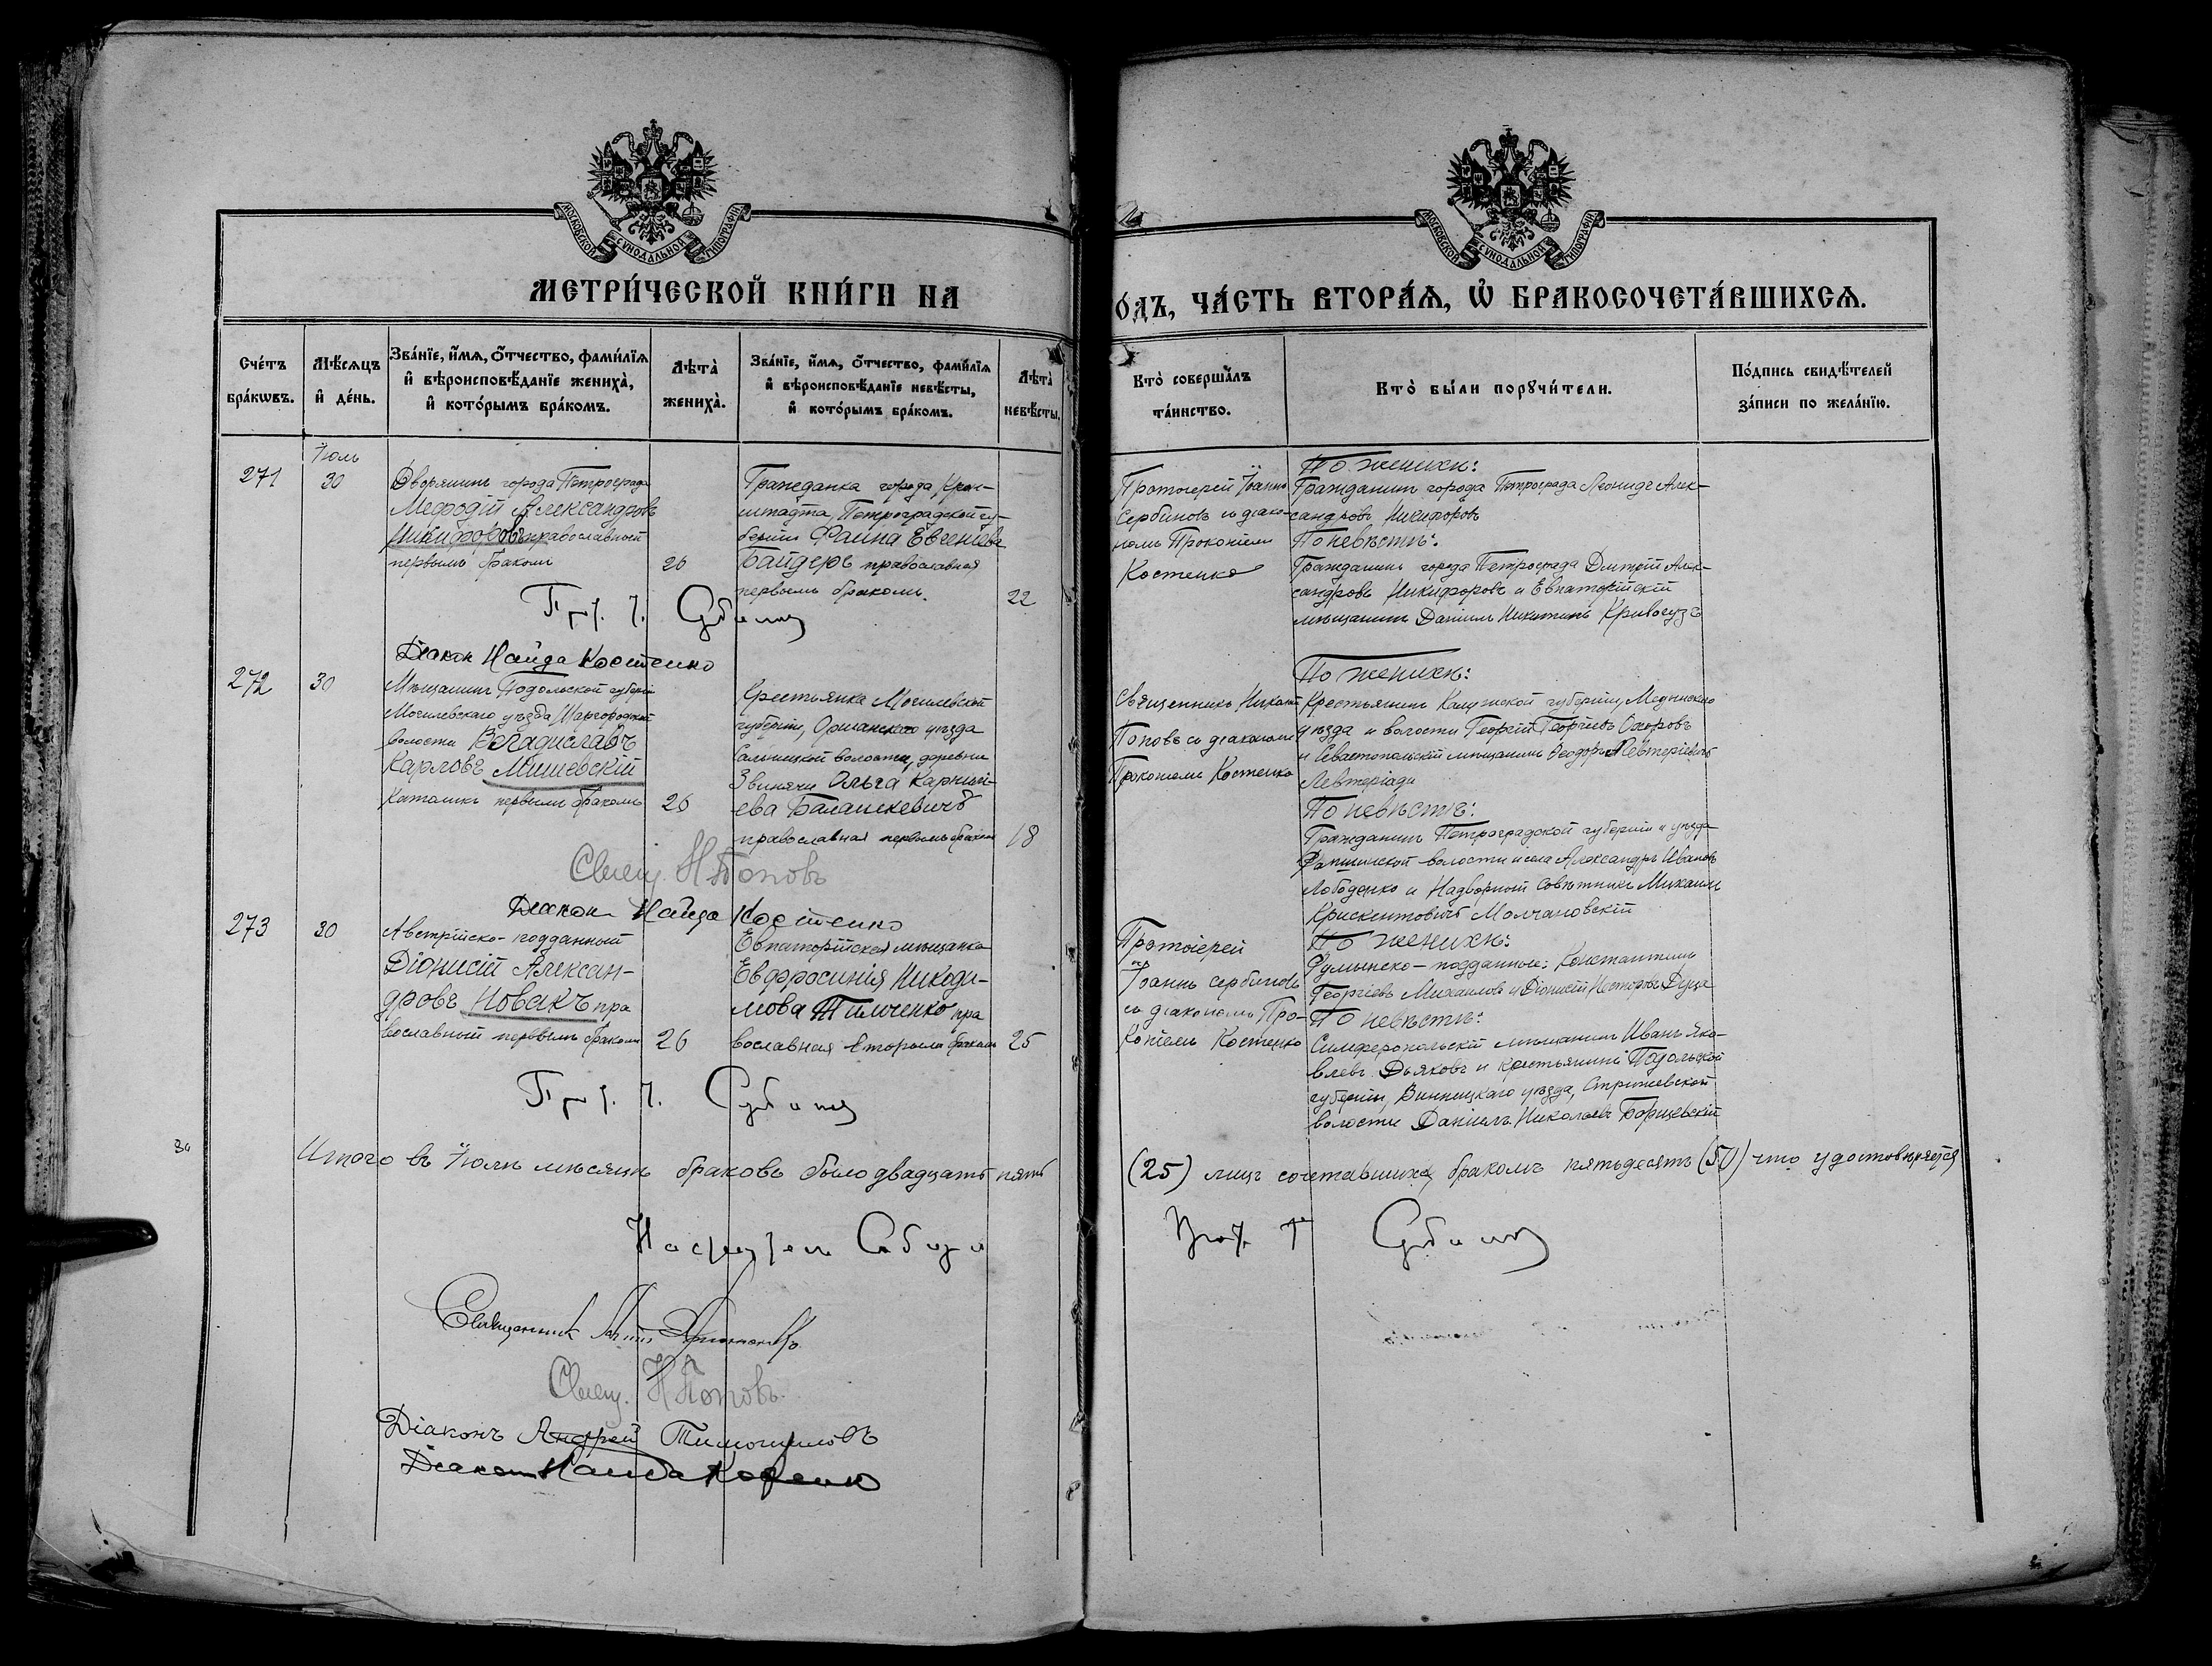 МОСКОВСКОЙ СѴНОДАЛЬНОЙ ТИПОГРАФІИ
МЕТРИ́ЧЕСКОЙ КНИ́ГИ НА
Сче́тъ бра́кωвъ.
Мѣ́сѧцъ и҆ де́нь.
Зва́нїе, и҆́мѧ, ѻ҆́тчество, фами́лїѧ
и҆ вѣроисповѣ́данїе жениха̀,
и҆ кото́рымъ бра́комъ.
Лѣта̀ жениха̀.
Зва́нїе, и҆́мѧ, ѻ҆́тчество, фами́лїѧ
и҆ вѣроисповѣ́данїе невѣ́сты,
и҆ кото́рымъ бра́комъ.
Лѣта̀ невѣ́сты.
Іюль
271
30
Дворянинъ города Петрограда
Меѳодій Александровъ
Никифоровъ православный
первымъ бракомъ
26
Гражданка города Крон-
штадта, Петроградской гу-
берніи Фаина Евгеніева
Байдеръ православная
первымъ бракомъ.
22
Діакон Найда Костенко
272
30
Мѣщанинъ Подольской губерніи
Могилевскаго уѣзда Шаргородской
волости Владиславъ
Карловъ Мишевскій
Католикъ первымъ бракомъ
26
Крестьянка Могилевской
губерніи, Оршанскаго уѣзда
волости, деревни
Звинячи Ольга Карпий-
ева Балашкевичъ
православная первымъ бракомъ
18
Свящ. Н. Поповъ
Діакон Найда Костенко
273
30
Австрійско-подданный
Діонисій Алексан-
дровъ Новакъ пра
вославный первымъ бракомъ
26
Евпаторійская мѣщанка
Евфросинія Никоди-
мова Тимченко пра
вославная вторымъ бракомъ
25
Итого въ Іюлѣ мѣсяцѣ браковъ было двадцать пять
Священник
Свящ. Н Поповъ.
Діаконъ Андрей
Діакон Найда Костенко
МОСКОВСКОЙ СѴНОДАЛЬНОЙ ТИПОГРАФІИ
О́ДЪ, ЧА́СТЬ ВТОРА́Ѧ, Ѡ҆ БРАКОСОЧЕТА́ВШИХСѦ.
Кто̀ соверша́лъ
та́инство.
Кто̀ бы́ли порꙋчи́тели.
По́дпись свидѣ́телей
за́писи по жела́нїю.
Протоіерей Іоаннъ
Сербиновъ съ діако-
номъ Прокопіемъ
Костенко
По женихѣ:
Гражданинъ города Петрограда Леонидъ Алек-
сандровъ Никифоровъ
По невѣстѣ:
Гражданинъ города Петрограда Дмитрій Алек-
сандровъ Никифоровъ и Евпаторійскій
мѣщанинъ Даніилъ Никитинъ Кривогузъ
Священникъ Николай
Поповъ съ діакономъ
Прокопіемъ Костенко
По женихѣ:
Крестьянинъ Калужской губерніи, Медынскаго
уѣзда и волости Георгій Георгіевъ
и Севастопольскій мѣщанинъ Ѳеодоръ Левтеріевичъ
Левтеріади
По невѣстѣ:
Гражданинъ Петроградской губерніи и уѣзда
волости и села Александръ Ивановъ
Лободенко и Надворный совѣтникъ Михаилъ
Крискентовичъ Молчановскій
Протоіерей
Іоаннъ Сербиновъ
съ діакономъ Про-
копіемъ Костенко
По женихѣ:
Румынско-подданные: Константинъ
Георгіевъ Михаиловъ и Діонисій Несторовъ Дуца
По невѣстѣ:
Симферопольскій мѣщанинъ Иванъ Яко-
влевъ Дьяковъ и крестьянинъ Подольской
губерніи, Винницкаго уѣзда, Стрижевской
волости Даніилъ Николаевъ Борщевскій
(25) лицъ сочетавшихся бракомъ пятьдесятъ (50) что удостовѣряется